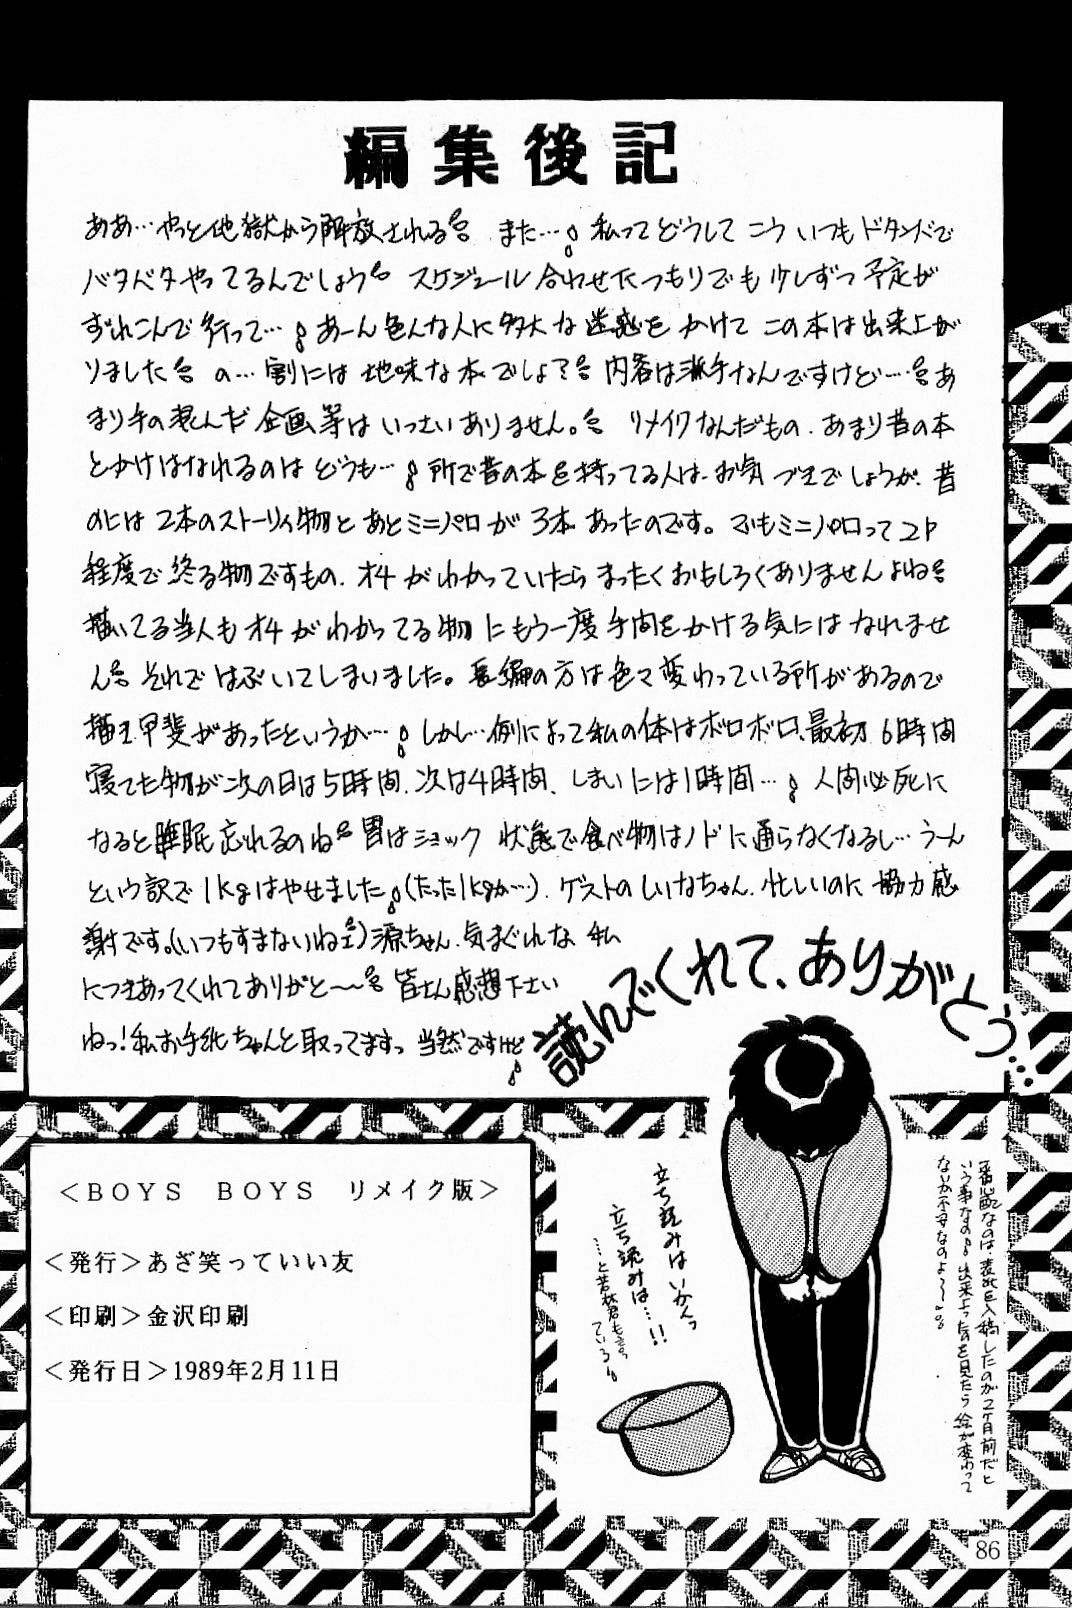 編集後記
ああ…やっと地獄から解放される また… 私ってどうしてこういつもドタンバで
バタバタやってるんでしょう スケジュール合わせたつもりでも少しずつ予定が
ずれこんで行って… あーん色んな人に多大な迷惑をかけてこの本は出来上が
りました の…割には地味な本でしょ？ 内容は派手なんですけど… あ
まり手の混んだ企画等はいっさいありません。 リメイクなんだもの、あまり昔の本
とかけはなれるのはどうも… 所で昔の本を持ってる人は、お気づきでしょうが、昔
のには2本のストーリィ物とあとミニパロが3本あったのです。でもミニパロって2P
程度で終る物ですもの、オチがわかっていたらまったくおもしろくありませんよね
描いてる当人もオチがわかってる物にもう一度手間をかける気にはなれませ
ん それではぶいてしまいました。長編の方は色々変わっている所があるので
描き甲斐があったというか… しかし…例によって私の体はボロボロ、最初6時間
寝てた物が次の日は5時間、次は4時間、しまいには1時間… 人間必死に
なると睡眠忘れるのね 胃はショック状態で食べ物はノドに通らなくなるし…うーん
という訳で1kgはやせました(たった1kgか…)、ゲストのしいなちゃん、忙しいのに協力感
謝です。(いつもすまないねェ)源ちゃん、気まぐれな私
につきあってくれてありがと〜〜 皆さん感想下さい
ねっ!私お手紙ちゃんと取ってますっ 当然ですけど
読んでくれて、ありがとう…
一番心配なのは、表紙を入稿したのが2ヶ月前だと
いう事なの 出来上った本を見たら絵が変わって
ないか不安なのよ〜
立ち読みはいかんっ
立ち読みは…!!
…と若林君も言っ
ている
＜BOYS BOYS リメイク版＞
＜発行＞あざ笑っていい友
＜印刷＞金沢印刷
＜発行日＞1989年2月11日
86